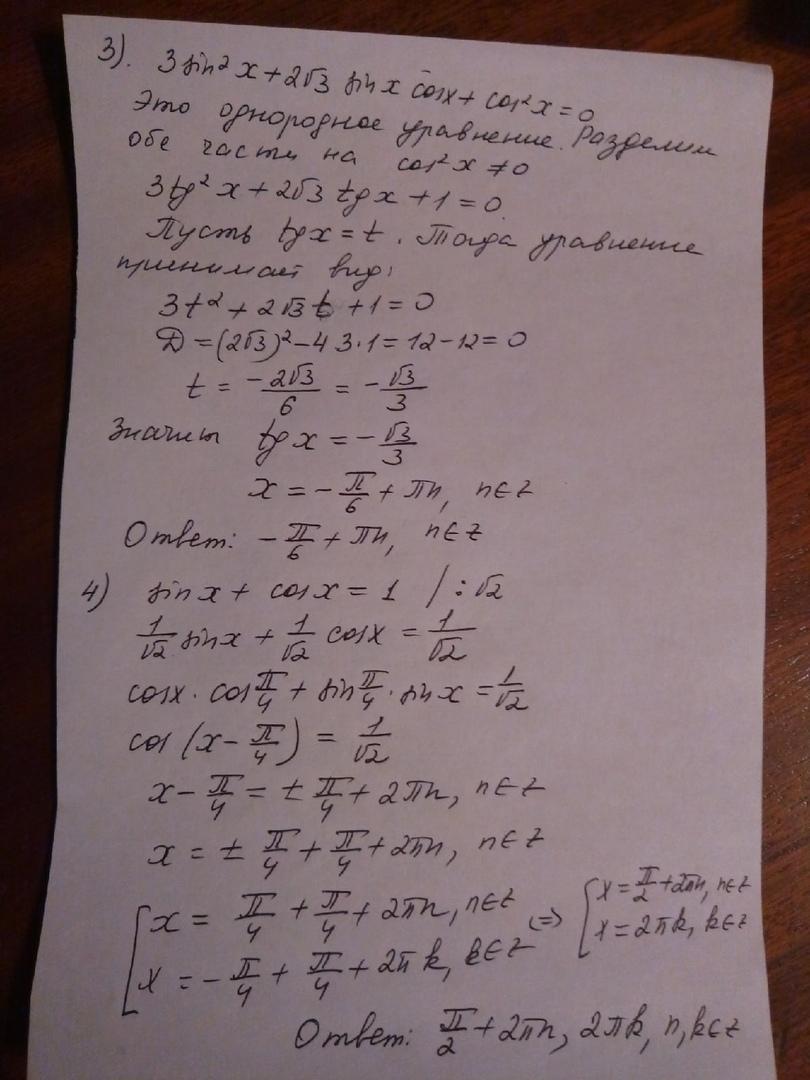 3). 3 sin² x + 2√3 sin x cos x + cos² x = 0
Это однородное уравнение. Разделим
обе части на cos² x ≠ 0
3 tg² x + 2√3 tg x + 1 = 0.
Пусть tg x = t. Тогда уравнение
принимает вид:
3t² + 2√3 t + 1 = 0
D = (2√3)² − 4 3·1 = 12 − 12 = 0
t = −2√3/6 = −√3/3
Значит tg x = −√3/3
x = −π/6 + πn, n∈Z
Ответ: −π/6 + πn, n∈Z
4) sin x + cos x = 1 / :√2
1/√2 sin x + 1/√2 cos x = 1/√2
cos x · cos π/4 + sin π/4 · sin x = 1/√2
cos (x − π/4) = 1/√2
x − π/4 = ± π/4 + 2πn, n∈Z
x = ± π/4 + π/4 + 2πn, n∈Z
[ x = π/4 + π/4 + 2πn, n∈Z (=> [ x = π/2 + 2πn, n∈Z
x = −π/4 + π/4 + 2πk, k∈Z x = 2πk, k∈Z
Ответ: π/2 + 2πn, 2πk, n, k∈Z